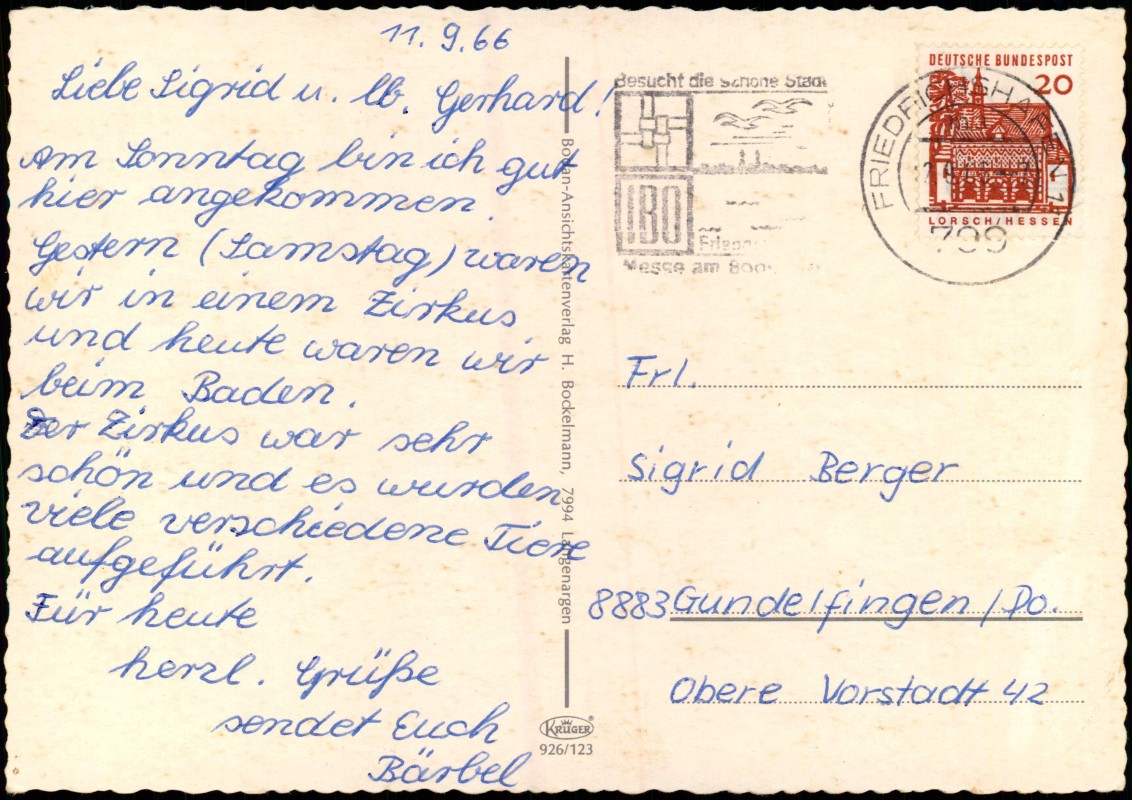 11.9.66
Liebe Sigrid u. lb. Gerhard!
Am Sonntag bin ich gut
hier angekommen.
Gestern (Samstag) waren
wir in einem Zirkus
und heute waren wir
beim Baden.
Der Zirkus war sehr
schön und es wurden
viele verschiedene Tiere
aufgeführt.
Für heute
herzl. Grüße
sendet Euch
Bärbel
Bodan-Ansichtskartenverlag H. Bockelmann, 7994 Langenargen
KRÜGER®
926/123
Besucht die schöne Stadt
IBO
Messe am
FRIEDRICHSHAFEN 1
799
DEUTSCHE BUNDESPOST
20
LORSCH/HESSEN
Frl.
Sigrid Berger
8883 Gundelfingen/Do.
Obere Vorstadt 42